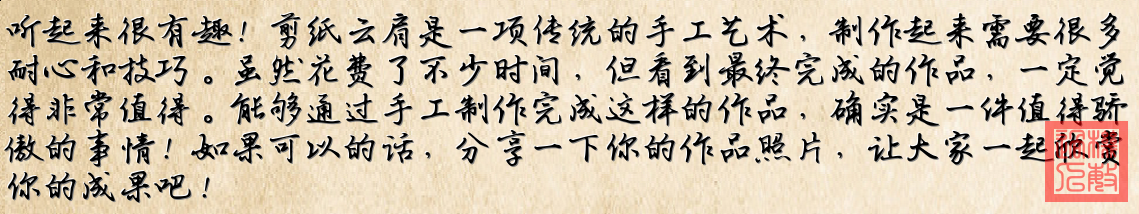 听起来很有趣！剪纸云肩是一项传统的手工艺术，制作起来需要很多
耐心和技巧。虽然花费了不少时间，但看到最终完成的作品，一定觉
得非常值得。能够通过手工制作完成这样的作品，确实是一件值得骄
傲的事情！如果可以的话，分享一下你的作品照片，让大家一起欣赏
你的成果吧！